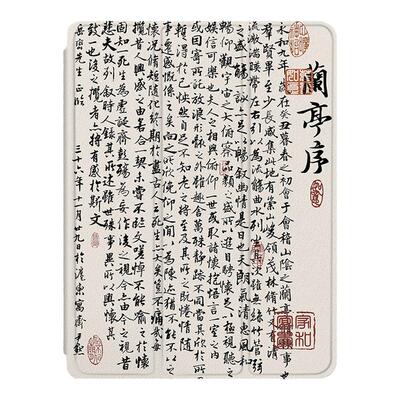 蘭亭序
永和九年歲在癸丑暮春之初會于會稽山陰之蘭亭 事也
群賢畢至少長咸集此地有崇山峻領茂林脩竹又有清
流激湍暎帶左右引以為流觴曲水列坐 次雖無絲竹管弦
之盛一觴一詠亦足以暢叙幽情是日也天朗氣清惠風和
暢仰觀宇宙之大俯察品類之盛所以遊目騁懷足以極視聽之
娛信可樂也夫人之相與俯仰一世或取諸懷抱悟言一室之內
或因寄所託放浪形骸之外雖趣舍萬殊靜躁不同當其欣於所遇
暫得於己快然自足不知老之將至及其所之既惓情隨
事遷感慨係之矣向之所欣俛仰之間以為陳迹猶不能不以之興
懷況脩短隨化終期於盡古人云死生亦大矣豈不痛哉每
攬昔人興感之由若合一契未嘗不臨文嗟悼不能喻於懷
固知一死生為虛誕齊彭殤為妄作後之視今亦由今之視昔
悲夫故列叙時人錄其所述雖世殊事異所以興懷其
致一也後之攬者亦將有感於斯文
三十六年十一月廿九日於滬東寓齋尹默
家和
富貴